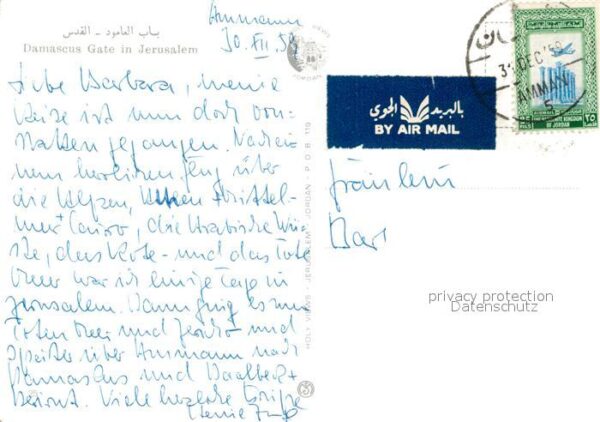 باب العامود - القدس
Damascus Gate in Jerusalem
Ammann
30. XII. 59
Liebe Barbara, meine
Reise ist nun doch von-
statten gegangen. Nach ei-
nem herrlichen Flug über
die Alpen, Mittel-
meer + Cairo, die Arabische Wü-
ste, das Rote- und das Tote
Meer war ich einige Tage in
Jerusalem. Dann ging es zum
Toten Meer und Jericho und
später über Ammann nach
Damaskus und Baalbek +
Beirut. Viele herzliche Grüße
VIEWS
JORDAN
HOLY VIEWS - JERUSALEM JORDAN - P.O.B. 119
بالبريد الجوي
BY AIR MAIL
عمان
31 DEC 59
AMMAN
5
KINGDOM
OF JORDAN
٢٥
Fräulein
Barb
privacy protection
Datenschutz